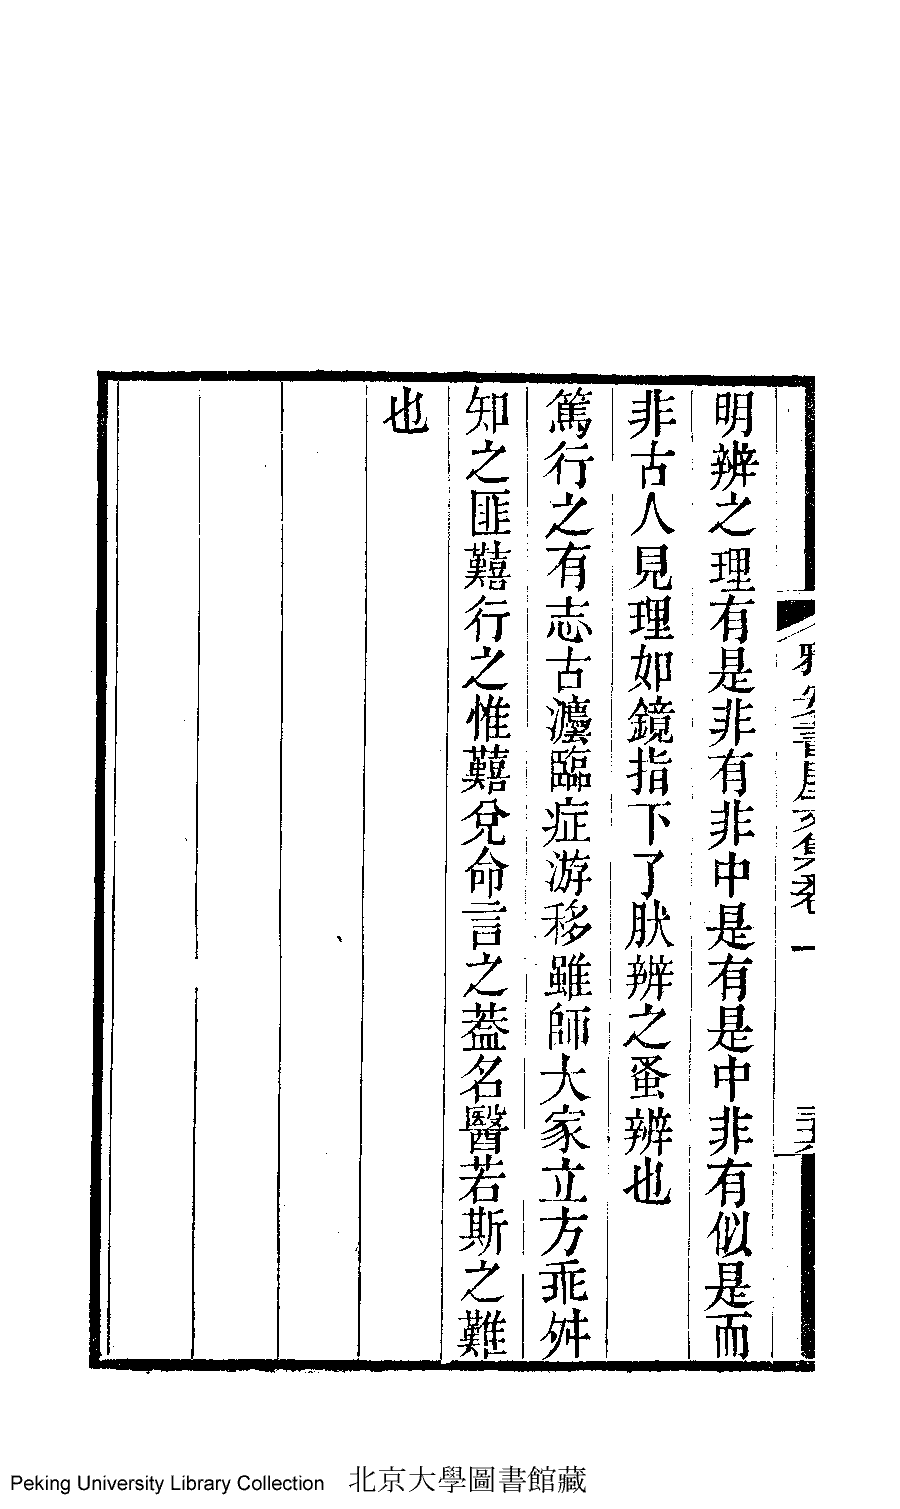 明辨之理有是非有非中是有是中非有似是而
非古人見理如鏡指下了肰辨之蚤辨也
篤行之有志古灋臨症游移雖師大家立方乖舛
知之匪囏行之惟囏兌命言之葢名醫若斯之難
也
雅安書屋文集卷一
Peking University Library Collection 北京大學圖書館藏